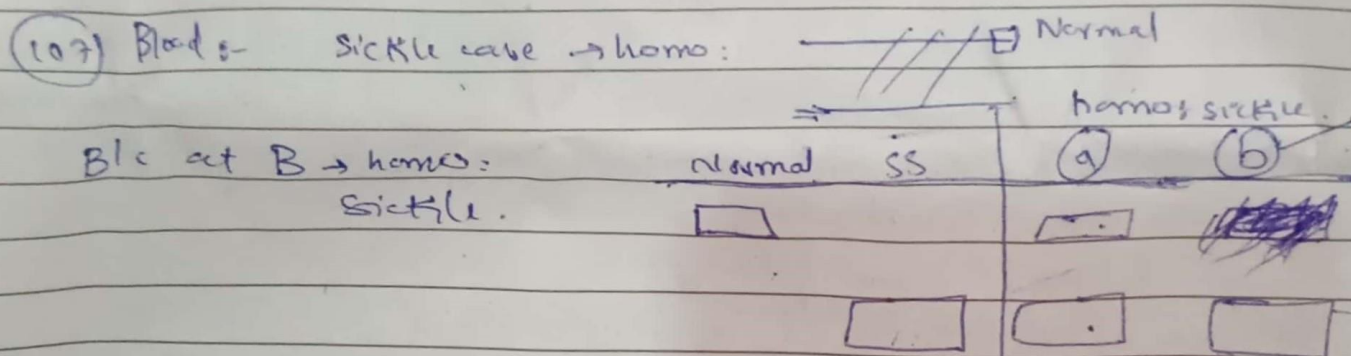 (107) Blood :- Sickle case → homo: Normal
homo; sickle.
B/c at B → homo: Normal SS (a) (b)
Sickle.